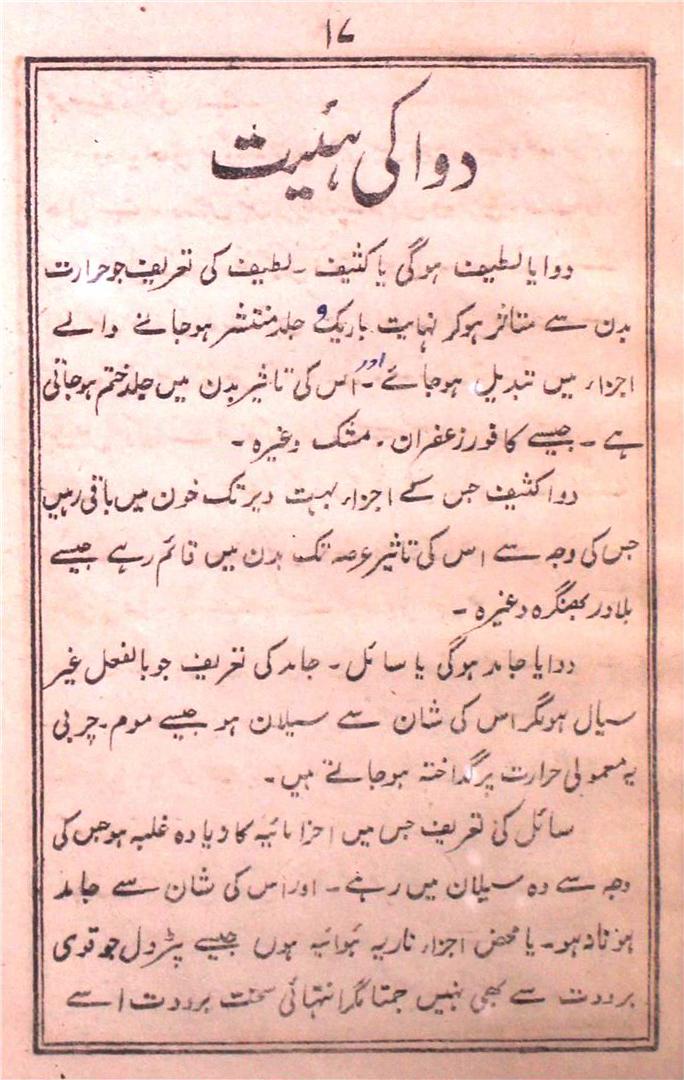 ۱۷
دوا کی ہئیت
دوا یا لطیف ہوگی یا کثیف ۔ لطیف کی تعریف جو حرارت
بدن سے متاثر ہوکر نہایت باریک و جلد منتشر ہوجانے والے
اجزاء میں تبدیل ہوجائے ۔ اور اس کی تاثیر بدن میں جلد ختم ہوجاتی
ہے ۔ جیسے کافور زعفران ۔ مشک وغیرہ ۔
دوا کثیف جس کے اجزاء بہت دیر تک خون میں باقی رہیں
جس کی وجہ سے اس کی تاثیر عرصہ تک بدن میں قائم رہے جیسے
بلادر بھنگرہ وغیرہ ۔
دوا یا جامد ہوگی یا سائل ۔ جامد کی تعریف جو بالفعل غیر
سیال ہو مگر اس کی شان سے سیلان ہو جیسے موم ۔ چربی
یہ معمولی حرارت پر گداختہ ہوجاتے ہیں ۔
سائل کی تعریف جس میں اجزا مائیہ کا دیادہ غلبہ ہو جس کی
وجہ سے وہ سیلان میں رہے ۔ اور اس کی شان سے جامد
ہونا نہ ہو ۔ یا محض اجزاء ناریہ ہوائیہ ہوں جیسے پٹرول جو قوی
برودت سے بھی نہیں جمتا مگر انتہائی سخت برودت اسے